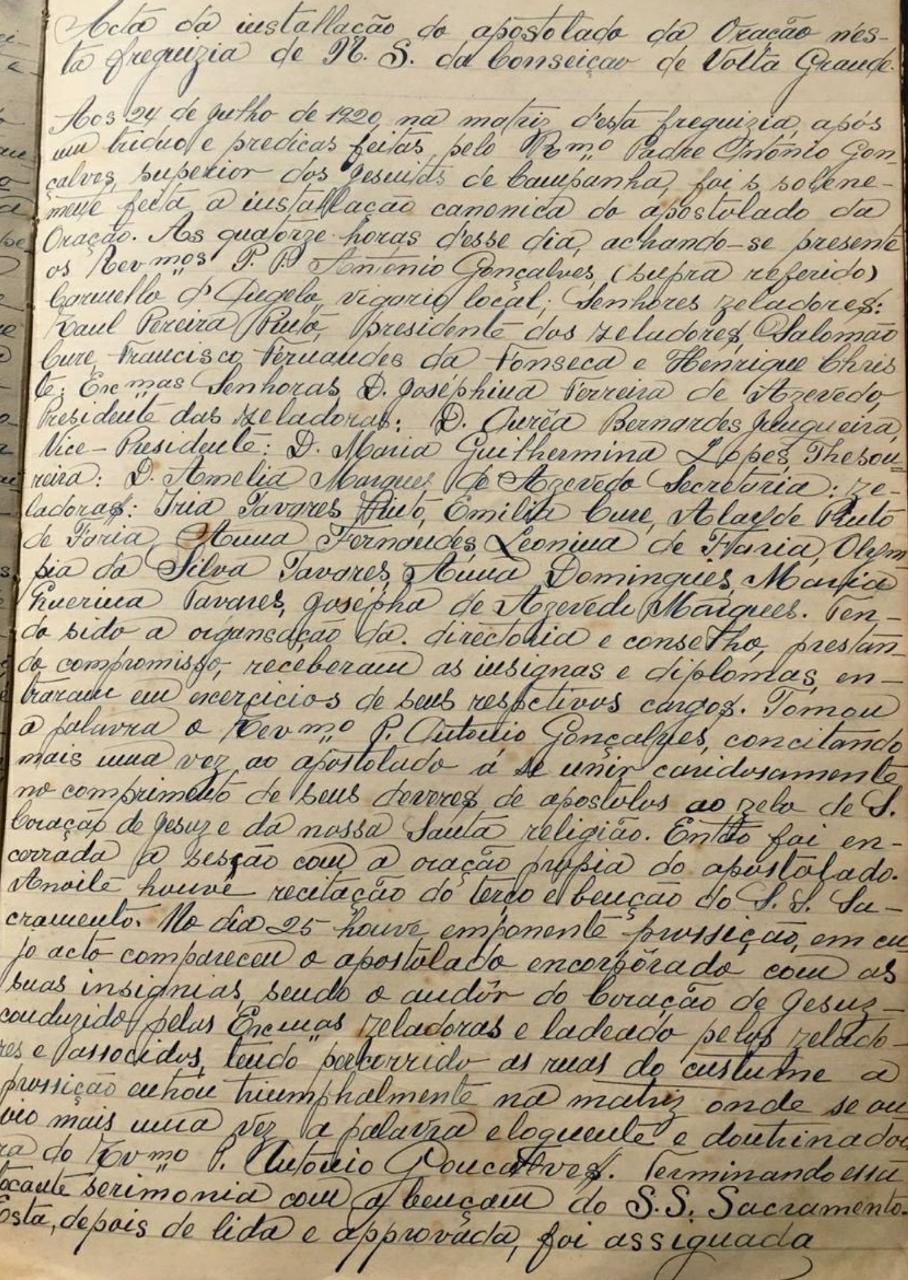 Acta da installação do apostolado da Oração nes-
ta freguizia de N. S. da Conseiçao de Volta Grande.
Aos 24 de Julho de 1920, na matriz d'esta freguizia, após
um triduo e predicas feitas pelo Rmo Padre Antônio Gon
çalves, superior dos Jesuitas de Campanha, foi solene-
mente feita a installação canonica do apostolado da
Oração. As quatorze horas d'esse dia, achando-se presente
os Revmos P. P. Antonio Gonçalves, (supra referido)
Carmello d'Angelo, vigario local; Senhores zeladores:
Raul Pereira Pinto, presidente dos zeladores, Salomão
Cure, Francisco Fernandes da Fonseca e Henrique Chris
te; Excmas Senhoras D. Joséphina Ferreira de Azevedo,
Presidente das zeladoras; D. Auréa Bernardes Junqueira,
Vice-Presidente: D. Maria Guilhermina Lopes, Thesou-
reira: D. Amelia Marques de Azevedo Secretaria: ze-
ladoras: Iria Tavares Pinto, Emilia Cure, Alayde Pinto
de Faria, Anna Fernandes, Leonina de Faria, Olym
pia da Silva Tavares, Anna Domingues, Maria
Guerina Tavares, Josépha de Azevedo Marques. Ten-
do sido a organsação da directoria e conselho, prestan-
do compromisso, receberam as insignas e diplomas, en-
traram em exercicios de seus respctivos cargos. Tomou
a palavra o Revmo P. Antonio Gonçalves, concitando
mais uma vez ao apostolado á se unir caridosamente
no comprimento de seus deveres de apostolos ao zelo de S.
Coração de Jesuz e da nossa Santa religião. Então foi en-
corrada a sessção com a oração propia do apostolado.
Anoite houve recitação do terço e benção do S. S. Sa-
cramento. No dia 25 houve emponente prossição, em cu
jo acto compareceu o apostolado encorporado com as
suas insignias, sendo o andôr do Coração de Jesuz
conduzido pelas Excmas zeladoras e ladeado pelos zelado-
res e associdos, tendo percorrido as ruas do custume a
prossição entrou triumphalmente na matriz onde se ou
vio mais uma vez a palavra eloquente e doutrinado
ra do Rvmo P. Antonio Goncalves. Terminando essa
tocante serimonia com a bençam do S.S. Sacramento.
Esta, depois de lida e approvada, foi assignada